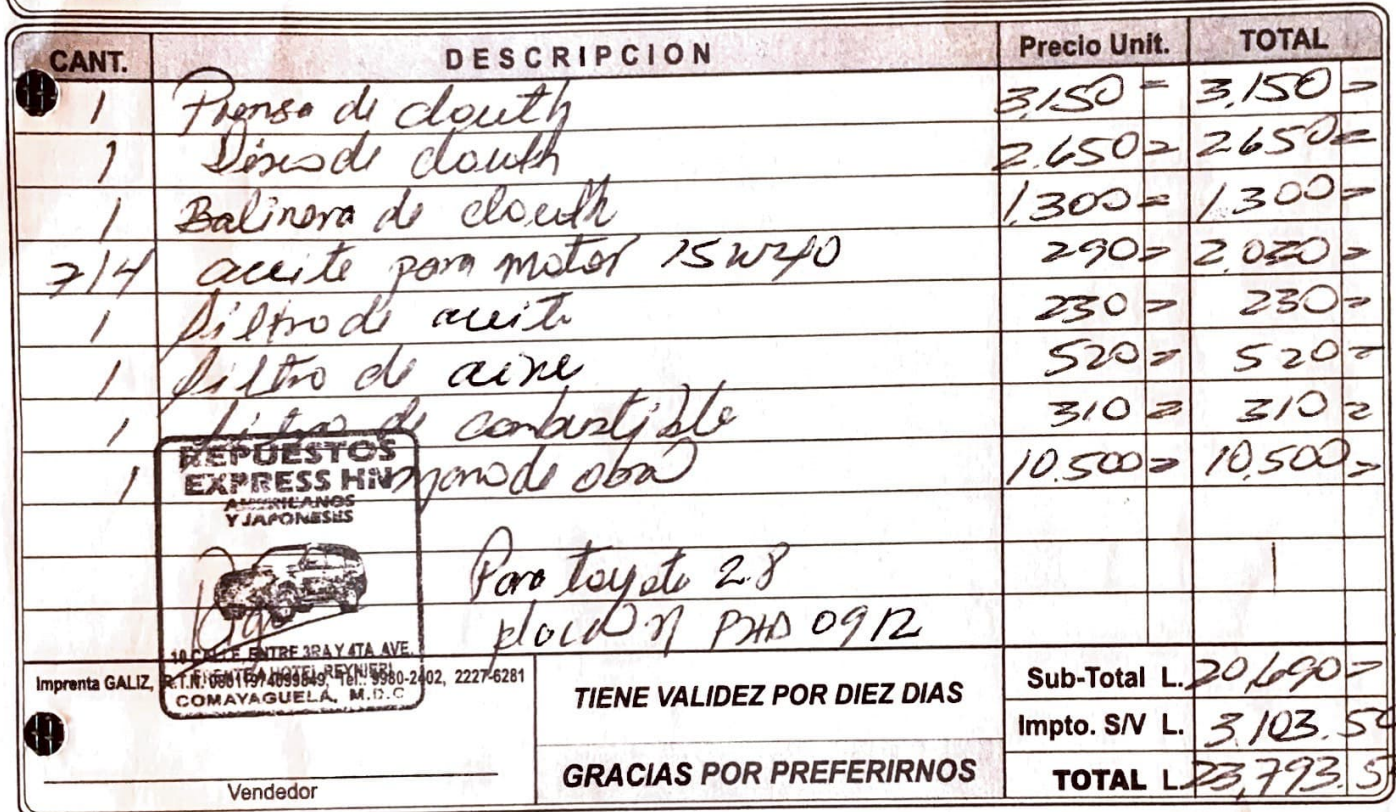 CANT. DESCRIPCION Precio Unit. TOTAL
1 Prensa de clouth 3,150= 3,150=
1 Disco de clouth 2.650= 2650=
1 Balinera de clouth 1,300= 1,300=
7/4 aceite para motor 15W40 290= 2,030=
1 filtro de aceite 230= 230=
1 filtro de aire 520= 520=
1 filtro de combustible 310= 310=
1 mano de obra 10.500= 10,500=
REPUESTOS
EXPRESS HN
AMERICANOS
Y JAPONESES
Para toyota 2.8
placa
0912
10 CALLE ENTRE 3RA Y 4TA AVE.
FRENTE A HOTEL REYNIERI
COMAYAGUELA, M.D.C
Imprenta GALIZ, R.T.N. Tel.: 9980-2402, 2227-6281
TIENE VALIDEZ POR DIEZ DIAS
GRACIAS POR PREFERIRNOS
Vendedor
Sub-Total L. 20,690=
Impto. S/V L. 3,103.50
TOTAL L. 23,793.5